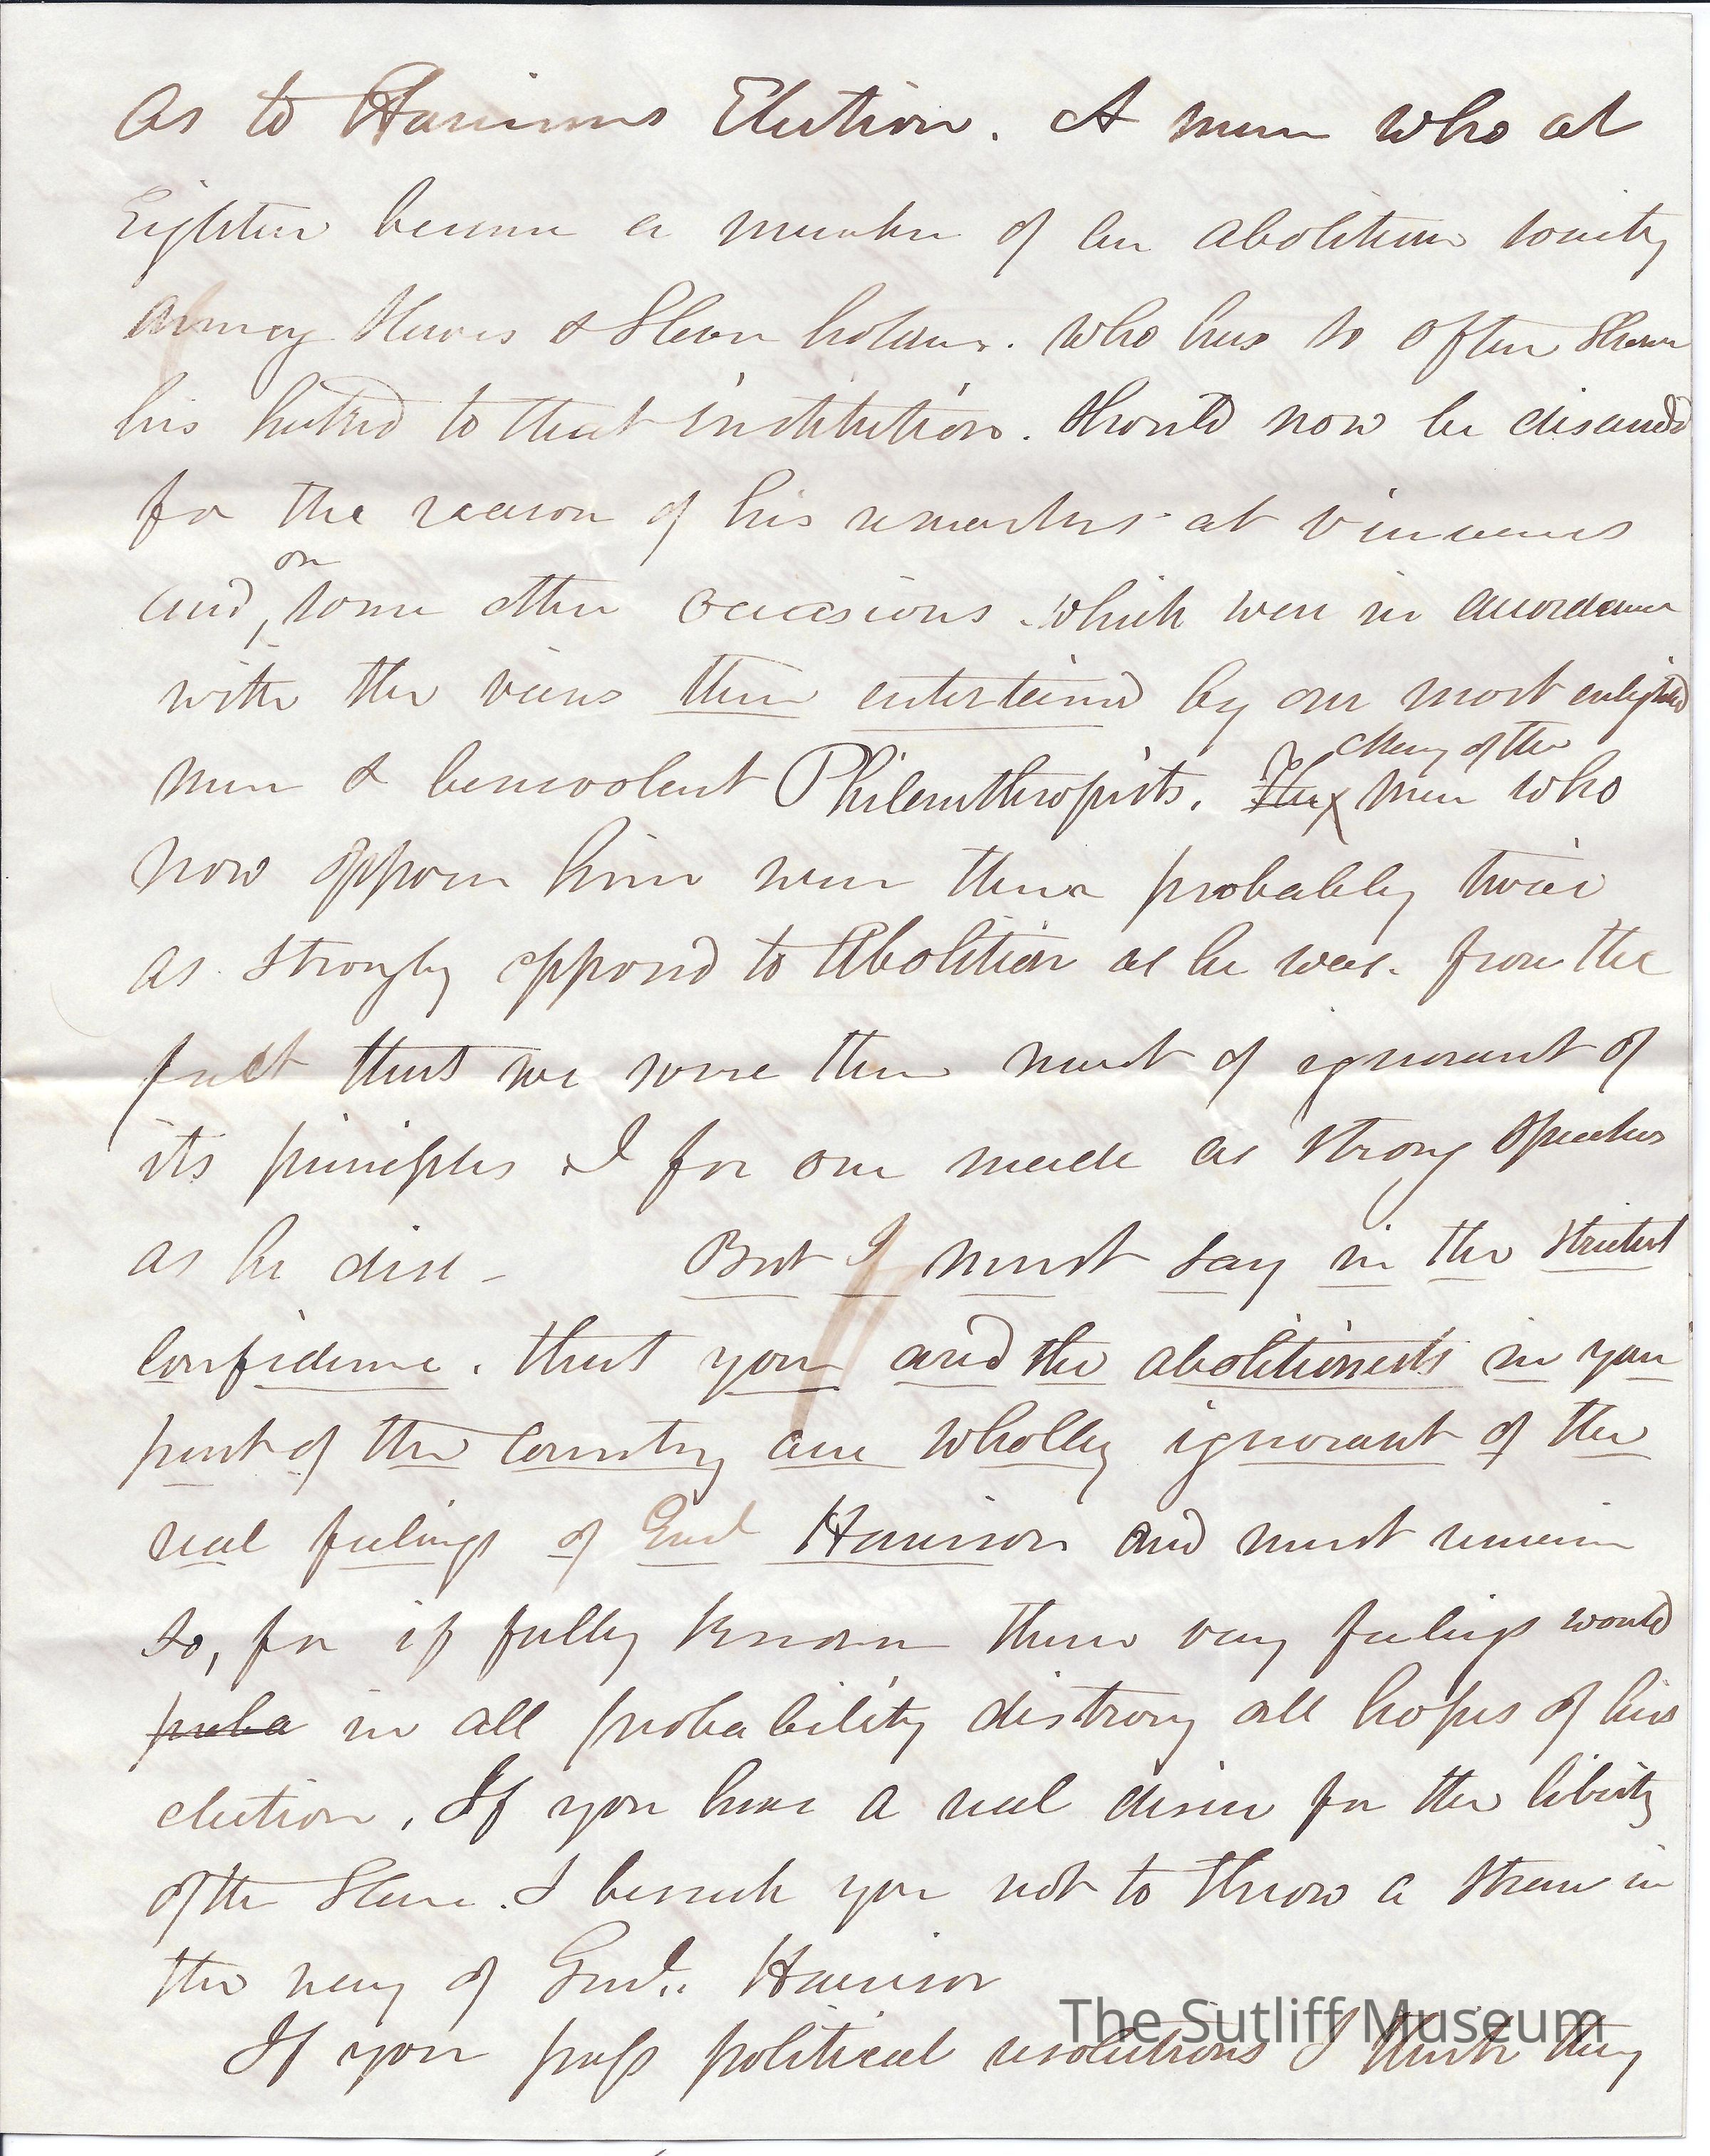 As to Harrisons Election. A man who at
Eighteen became a member of an abolition society
among Slaves & Slave holders. who has so often shown
his hatred to that institution. Should now be discarded
for the reason of his remarks at Vincennes
and, on some other occasions. which were in accordance
with the views then entertained by our most enlightend
men & benevolent Philanthropists. Many of the men who
now oppose him were then probably twice
as strongly opposed to Abolition as he was. from the
fact that we were then most of ignorant of
its principles I for one made as strong speeches
as he did -  But I must say in the strictest
confidence. that you and the abolitionists in your
part of the Country are wholly ignorant of the
real feelings of Genl Harrison and must remain
so, for if fully known those very feelings would
proba in all probability distroy all hopes of his
election. If you have a real desire for the liberty
of the Slave. I beseech you not to throw a straw in
the way of Genl. Harrison
If you pass political resolutions I think they
The Sutliff Museum